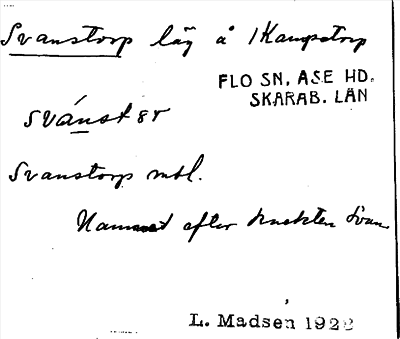 Svanstorp låg å /Kampstorp
FLO SN, ÅSE HD.
SKARAB. LÄN
svánst
Svanstorp mbl.
Namnet efter knekten Svan
L. Madsen 192